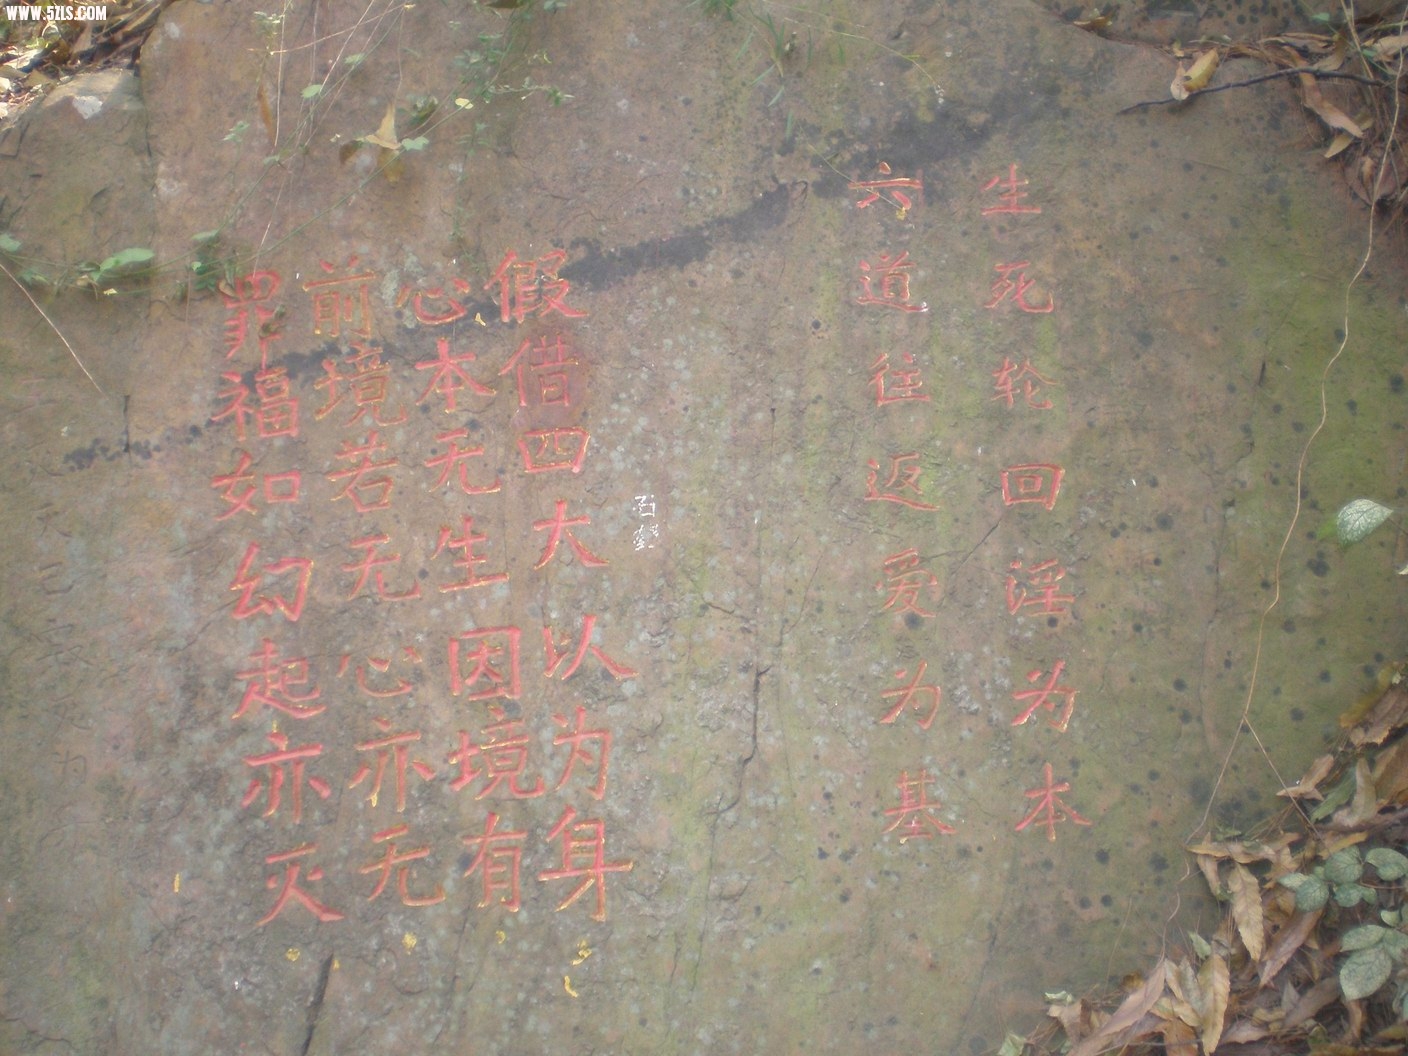 WWW.5ZLS.COM
生死轮回淫为本
六道往返爱为基
假借四大以为身
心本无生因境有
前境若无心亦无
罪福如幻起亦灭